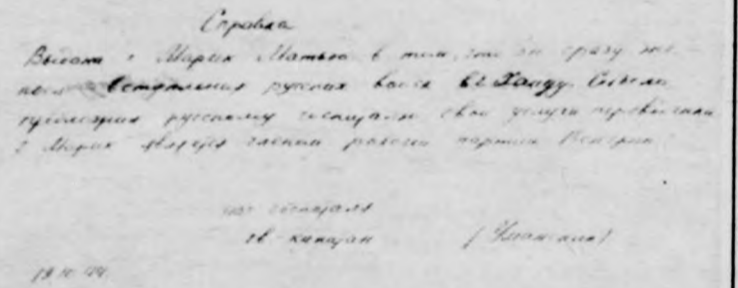 Справка
Выдана т Марик Матью в том, что он сразу же
после вступления русских войск в г Хайду
предложил русскому госпиталю свои услуги переводчика
т Марик является членом рабочей партии Венгрии
нач госпиталя
гв капитан
19.10.44.